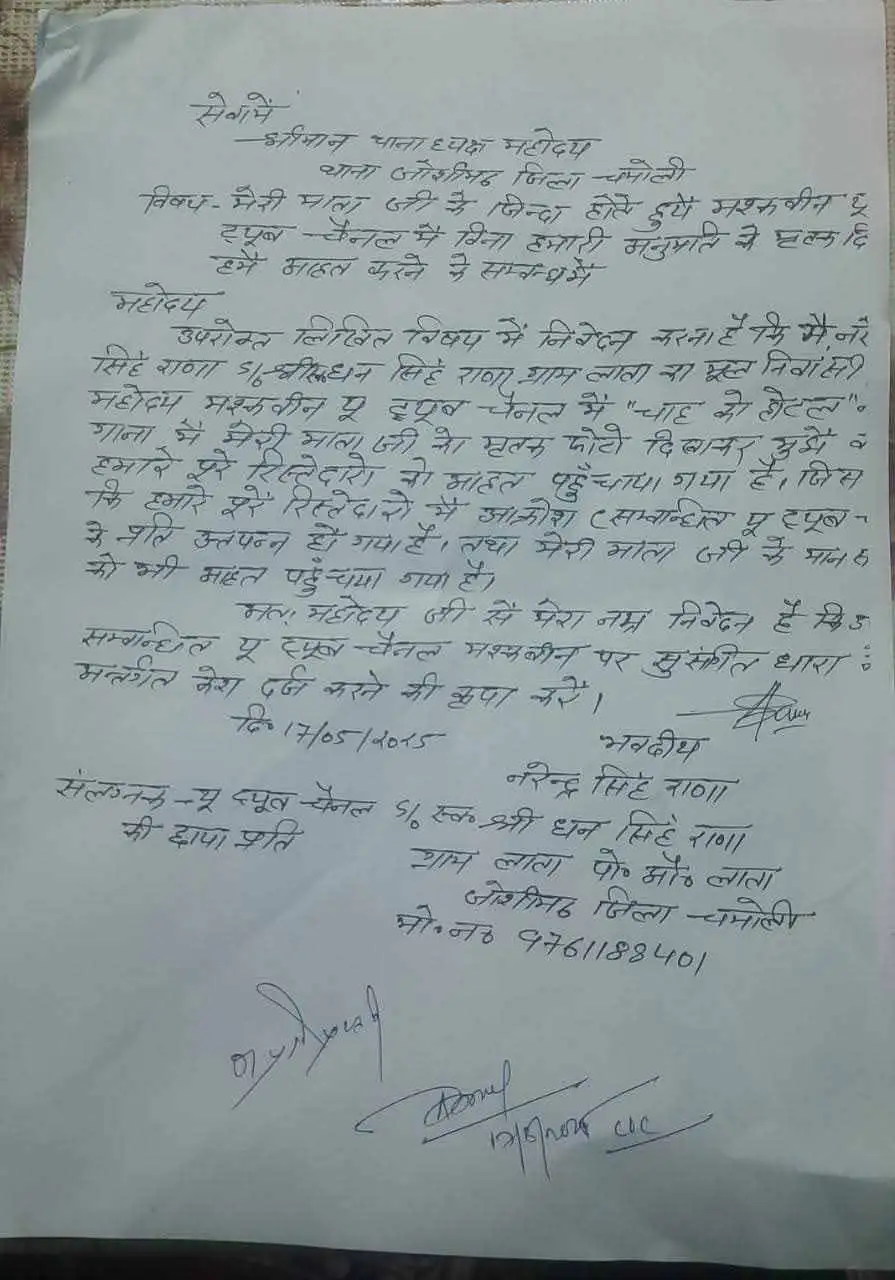 सेवामें
श्रीमान थानाध्यक्ष महोदय
थाना जोशीमठ जिला - चमोली
विषय - मेरी माता जी के जिन्दा होते हुये मश्कबीन यू
ट्यूब - चैनल में बिना हमारी अनुमति के मृतक दि
हमें आहत करने के सम्बन्ध में
महोदय
उपरोक्त लिखित विषय में निवेदन करना है कि मैं, नरे
सिंह राणा S/o स्व० श्री धन सिंह राणा ग्राम लाता का मूल निवासी
महोदय मश्कबीन यू ट्यूब - चैनल में "चाह को होटल"
गाना में मेरी माता जी का मृतक फोटो दिखाकर मुझे व
हमारे पूरे रिस्तेदारो को आहत पहुँचाया गया है। जिस
कि हमारे पूरे रिस्तेदारो में आक्रोश (सम्बन्धित यू ट्यूब -
के प्रति उत्तपन्न हो गया है। तथा मेरी माता जी के मान ह
को भी आहत पहुँचया गया है।
अतः महोदय जी से मेरा नम्र निवेदन है कि उ
सम्बन्धित यू ट्यूब - चैनल मश्कबीन पर सुसंगित धारा
अन्तर्गत केश दर्ज करने की कृपा करें।
दि० 17/05/2025
भवदीय
नरेन्द्र सिंह राणा
संलग्नक - यू ट्यूब - चैनल S/o स्व० श्री धन सिंह राणा
की छाया प्रति
ग्राम लाता पो० ऑ० लाता
जोशीमठ जिला - चमोली
मो० न० 9761188401